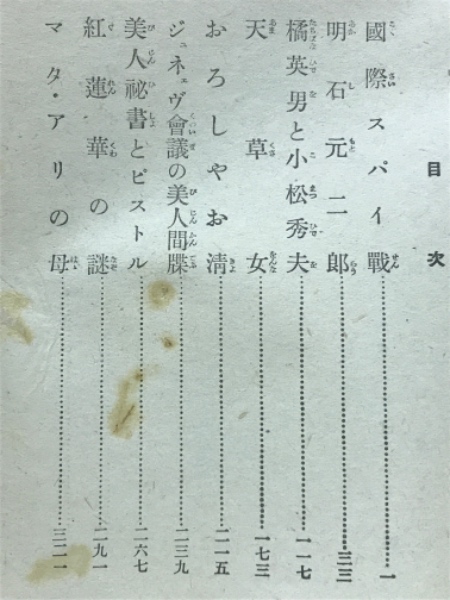 目次
國際スパイ戰……一
明石元二郎……三三
橘英男と小松秀夫……一一七
天草女……一七三
おろしやお淸……二一五
ジュネェヴ會議の美人間牒……二三九
美人祕書とピストル……二六七
紅蓮華の謎……二九一
マタ・アリの母……三二一